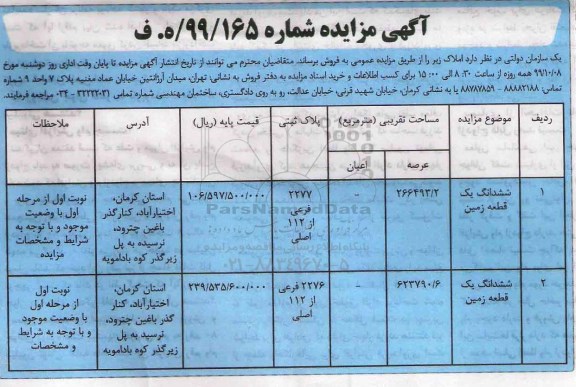 آگهی مزایده شماره ۹۹/۱۶۵/ه. ف
یک سازمان دولتی در نظر دارد املاک زیر را از طریق مزایده عمومی به فروش برساند. متقاضیان محترم می توانند از تاریخ انتشار آگهی مزایده تا پایان وقت اداری روز دوشنبه مورخ
۹۹/۱۰/۰۸ همه روزه از ساعت ۸:۳۰ الی ۱۵:۰۰ برای کسب اطلاعات و خرید اسناد مزایده به دفتر فروش به نشانی: تهران، میدان آرژانتین خیابان عماد مغنیه پلاک ۷ واحد ۹ شماره
تماس: ۸۸۸۸۲۱۸۸ - ۸۸۷۸۷۸۵۹ یا به نشانی کرمان، خیابان شهید قرنی، خیابان عدالت، رو به روی دادگستری، ساختمان مهندسی شماره تماس ۳۲۲۲۲۰۳۱ - ۰۳۴ مراجعه فرمایند.
ردیف موضوع مزایده مساحت تقریبی (مترمربع) پلاک ثبتی قیمت پایه (ریال) آدرس ملاحظات
عرصه اعیان
۱ ششدانگ یک ۲۶۶۴۹۳/۲ - ۲۲۷۷ ۱۰۶/۵۹۷/۵۰۰/۰۰۰ استان کرمان، نوبت اول از مرحله
قطعه زمین فرعی اختیارآباد، کنارگذر اول با وضعیت
از ۱۱۲ باغین چترود، موجود و با توجه به
اصلی نرسیده به پل شرایط و مشخصات
زیرگذر کوه بادامویه مزایده
ParsNamadData
۰۲۱-۸۸۳۴۹۶۷۰-۵
۲ ششدانگ یک ۶۲۳۷۹۰/۶ - ۲۲۷۶ فرعی ۲۳۹/۵۳۵/۶۰۰/۰۰۰ استان کرمان، نوبت اول
قطعه زمین از ۱۱۲ اختیارآباد، کنار از مرحله اول
اصلی گذر باغین چترود، با وضعیت موجود
نرسیده به پل و با توجه به شرایط
زیرگذر کوه بادامویه و مشخصات